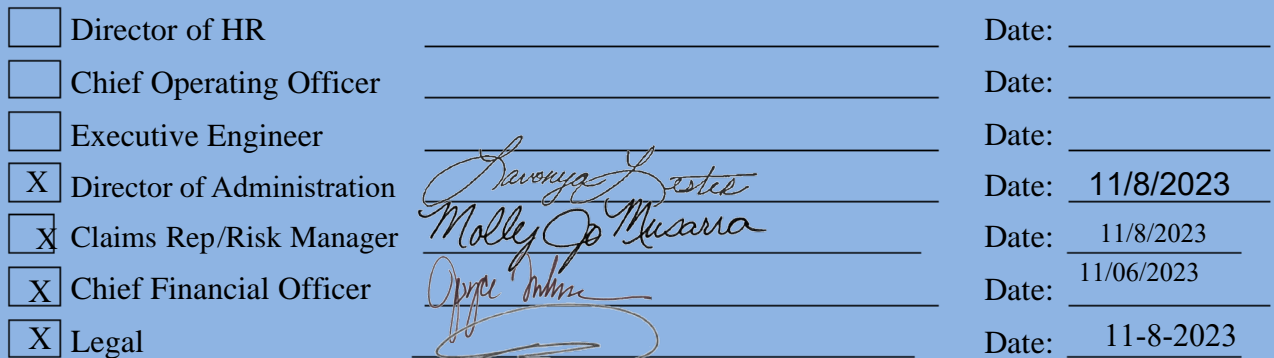 Director of HR Date:
Chief Operating Officer Date:
Executive Engineer Date:
X Director of Administration Lavonya Lester Date: 11/8/2023
X Claims Rep/Risk Manager Molly Jo Musarra Date: 11/8/2023
X Chief Financial Officer Date: 11/06/2023
X Legal Date: 11-8-2023